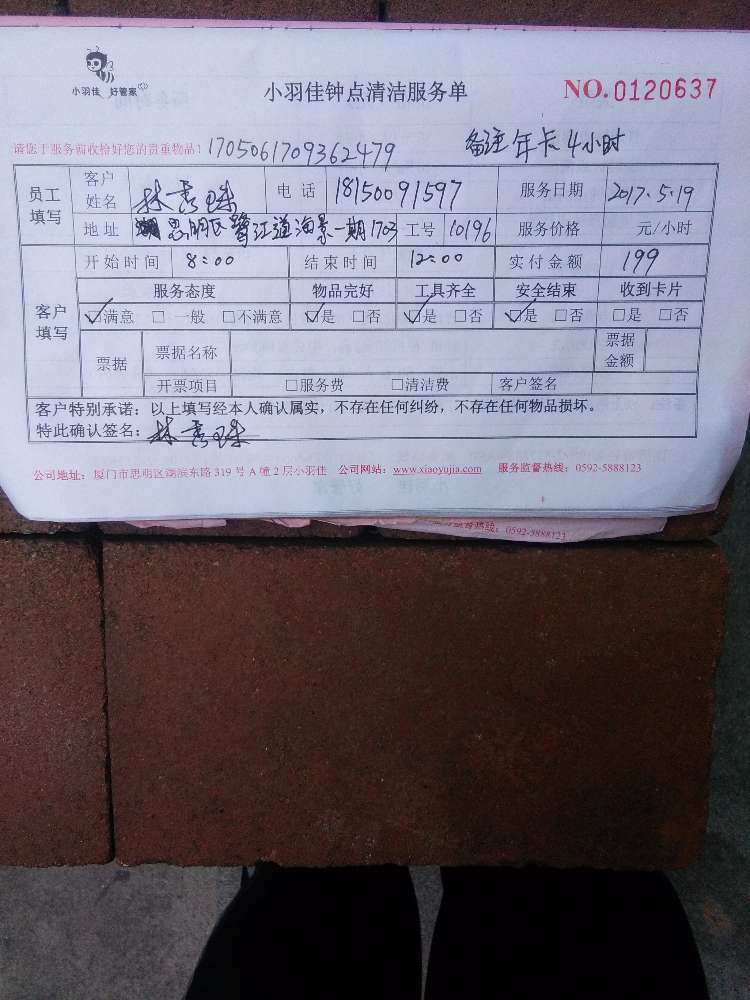 小羽佳 好管家
小羽佳钟点清洁服务单
NO.0120637
请您于服务前收拾好您的贵重物品! 1705061709362479 备注 年卡 4小时
员工填写 客户姓名 林秀珠 电话 18150091597 服务日期 2017.5.19
地址 思明区鹭江道海景一期1703 工号 10196 服务价格 元/小时
客户填写 开始时间 8:00 结束时间 12:00 实付金额 199
服务态度 物品完好 工具齐全 安全结束 收到卡片
☑满意 □一般 □不满意 ☑是 □否 ☑是 □否 ☑是 □否 □是 □否
票据 票据名称 票据金额
开票项目 □服务费 □清洁费 客户签名
客户特别承诺:以上填写经本人确认属实,不存在任何纠纷,不存在任何物品损坏。
特此确认签名: 林秀珠
公司地址:厦门市思明区湖滨东路 319 号 A 幢 2 层小羽佳 公司网站:www.xiaoyujia.com 服务监督热线:0592-5888123
热线:0592-5888123